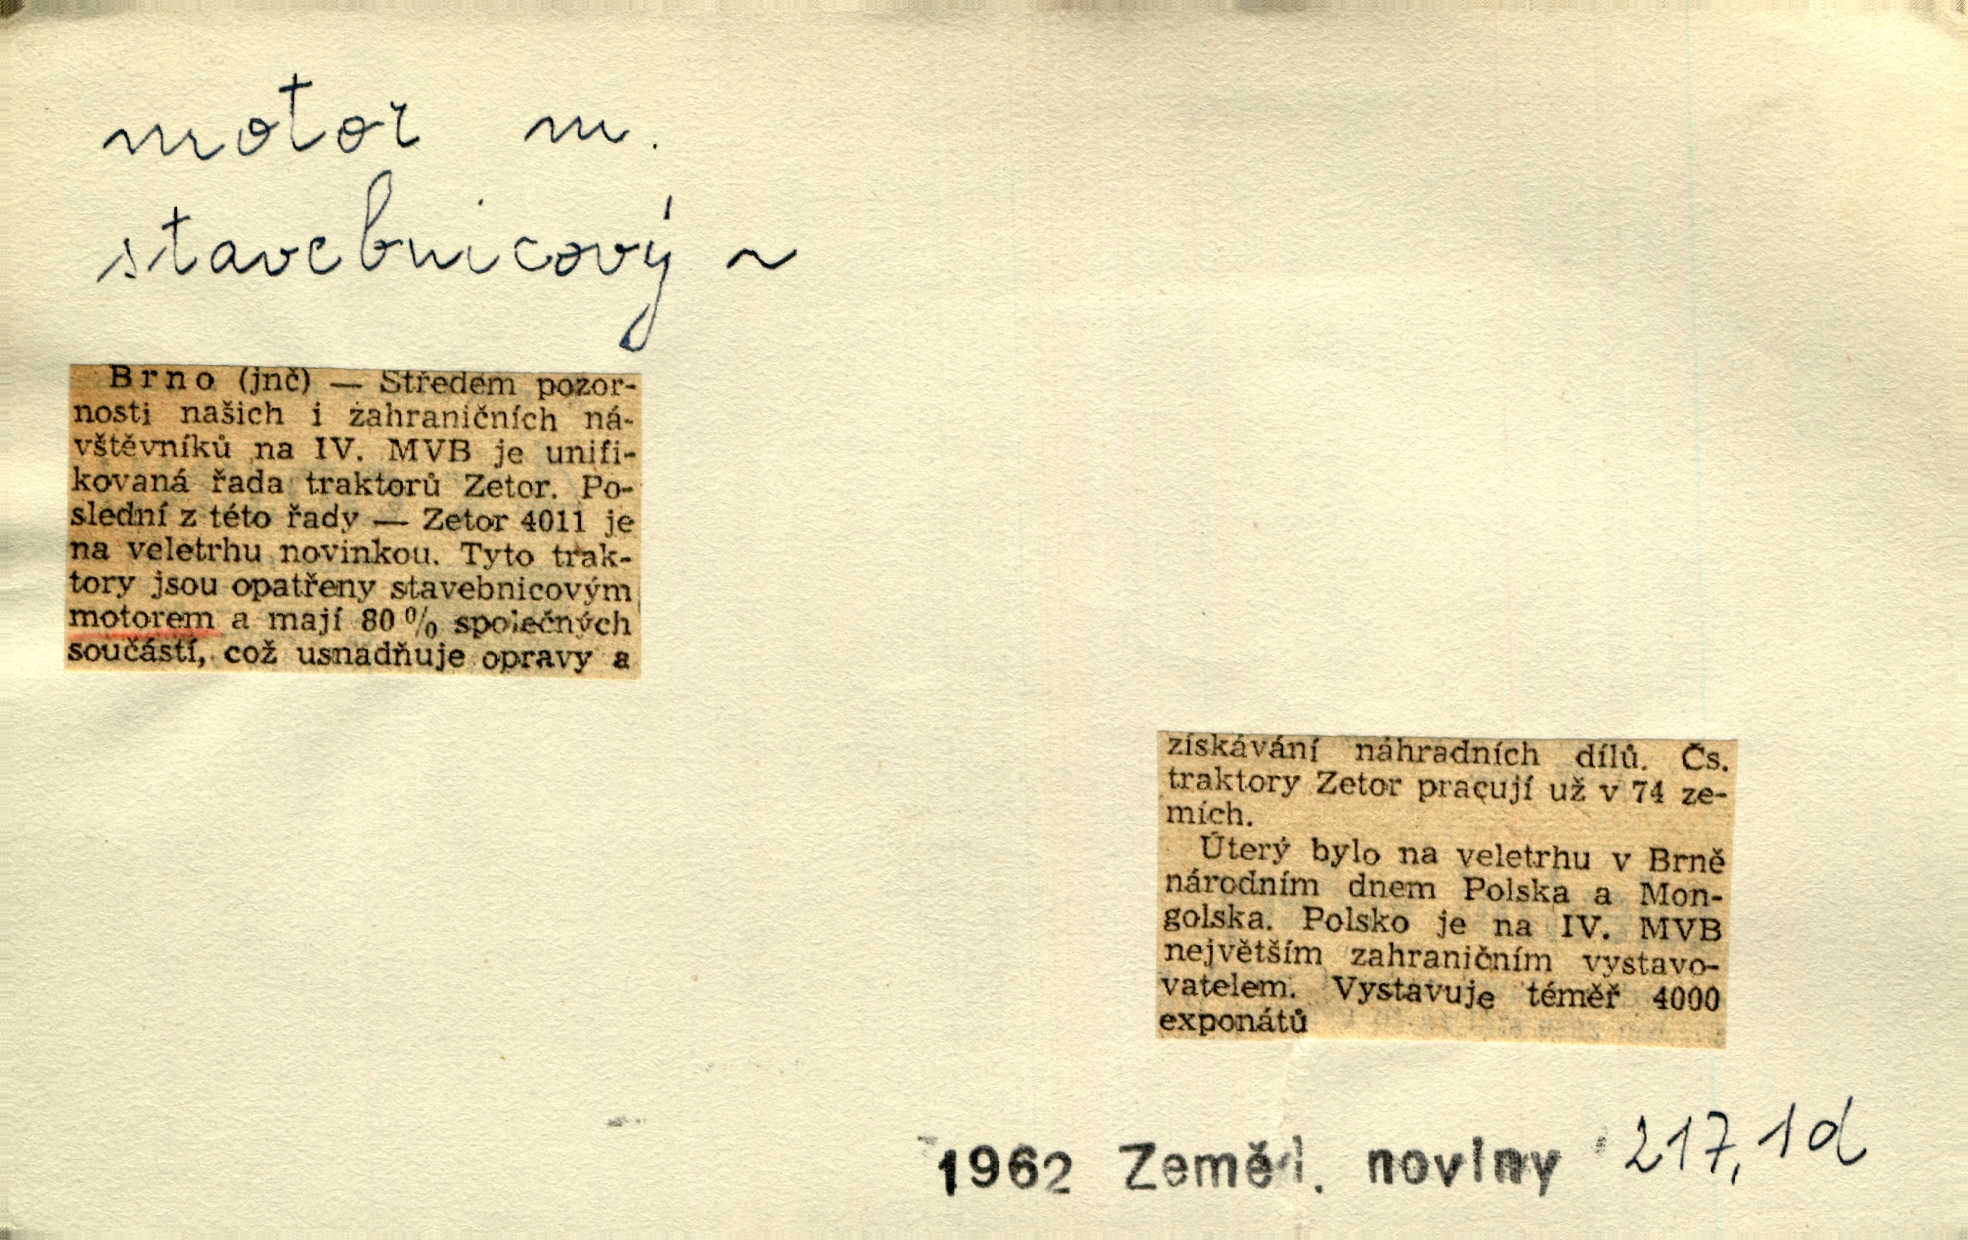 motor m.
stavebnicový ~
Brno (jnč) — Středem pozor-
nosti našich i zahraničních ná-
vštěvníků na IV. MVB je unifi-
kovaná řada traktorů Zetor. Po-
slední z této řady — Zetor 4011 je
na veletrhu novinkou. Tyto trak-
tory jsou opatřeny stavebnicovým
motorem a mají 80 % společných
součástí, což usnadňuje opravy a
získávání náhradních dílů. Čs.
traktory Zetor pracují už v 74 ze-
mích.
Úterý bylo na veletrhu v Brně
národním dnem Polska a Mon-
golska. Polsko je na IV. MVB
největším zahraničním vystavo-
vatelem. Vystavuje téměř 4000
exponátů
1962 Zeměd. noviny 217, 1d